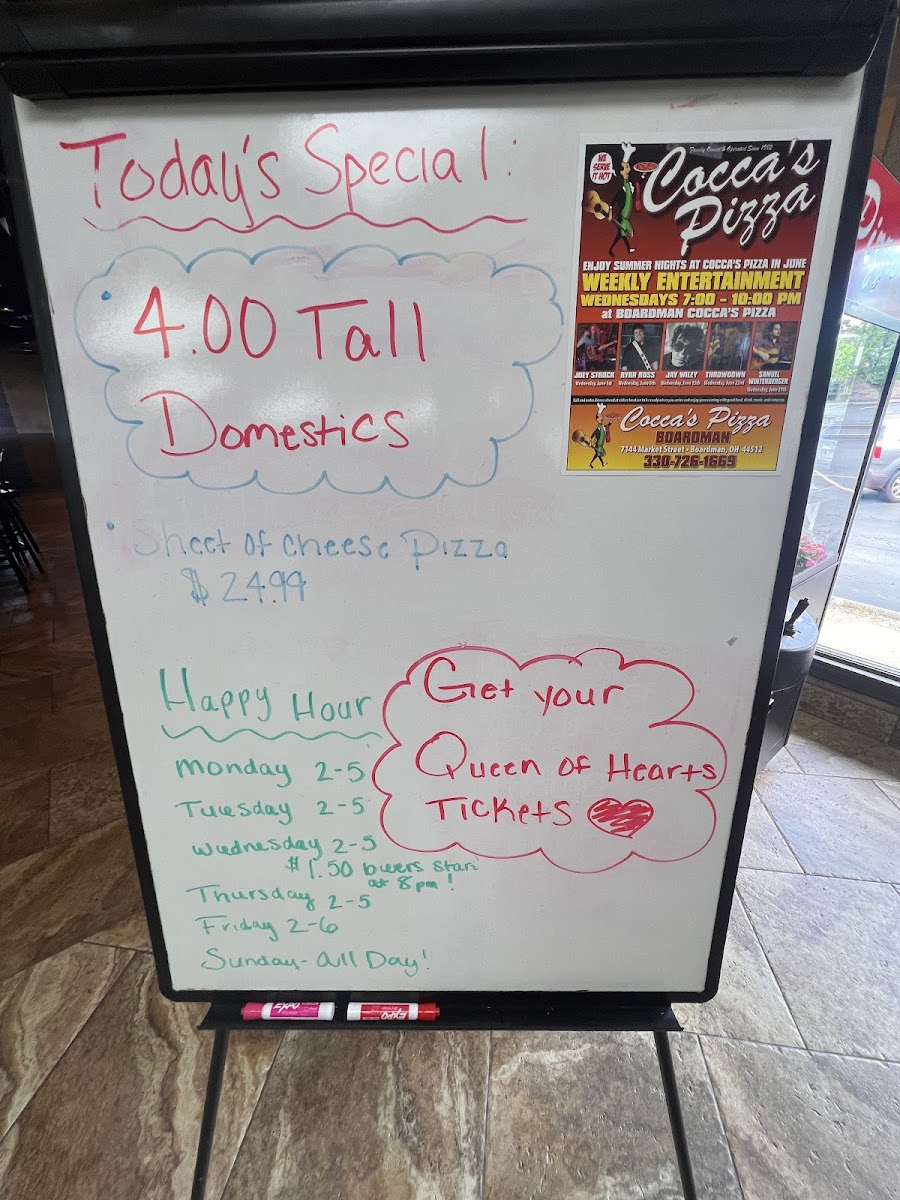 Today's Special:
4.00 Tall
Domestics
Sheet of cheese Pizza
$24.99
Happy Hour
Monday 2-5
Tuesday 2-5
Wednesday 2-5
$1.50 beers start
at 8pm!
Thursday 2-5
Friday 2-6
Sunday- All Day!
Get your
Queen of Hearts
Tickets
Family Owned & Operated Since 1982
WE
SERVE
IT HOT
Cocca's
Pizza
ENJOY SUMMER NIGHTS AT COCCA'S PIZZA IN JUNE
WEEKLY ENTERTAINMENT
WEDNESDAYS 7:00 - 10:00 PM
at BOARDMAN COCCA'S PIZZA
JOEY STROCK RYAN ROSS JAY WILEY THROWDOWN SAMUEL
WINTERBERGER
Wednesday, June 1st Wednesday, June 8th Wednesday, June 15th Wednesday, June 22nd
Wednesday, June 29th
Cocca's Pizza
BOARDMAN
7144 Market Street • Boardman, OH 44512
330-726-1669
EXPO
EXPO